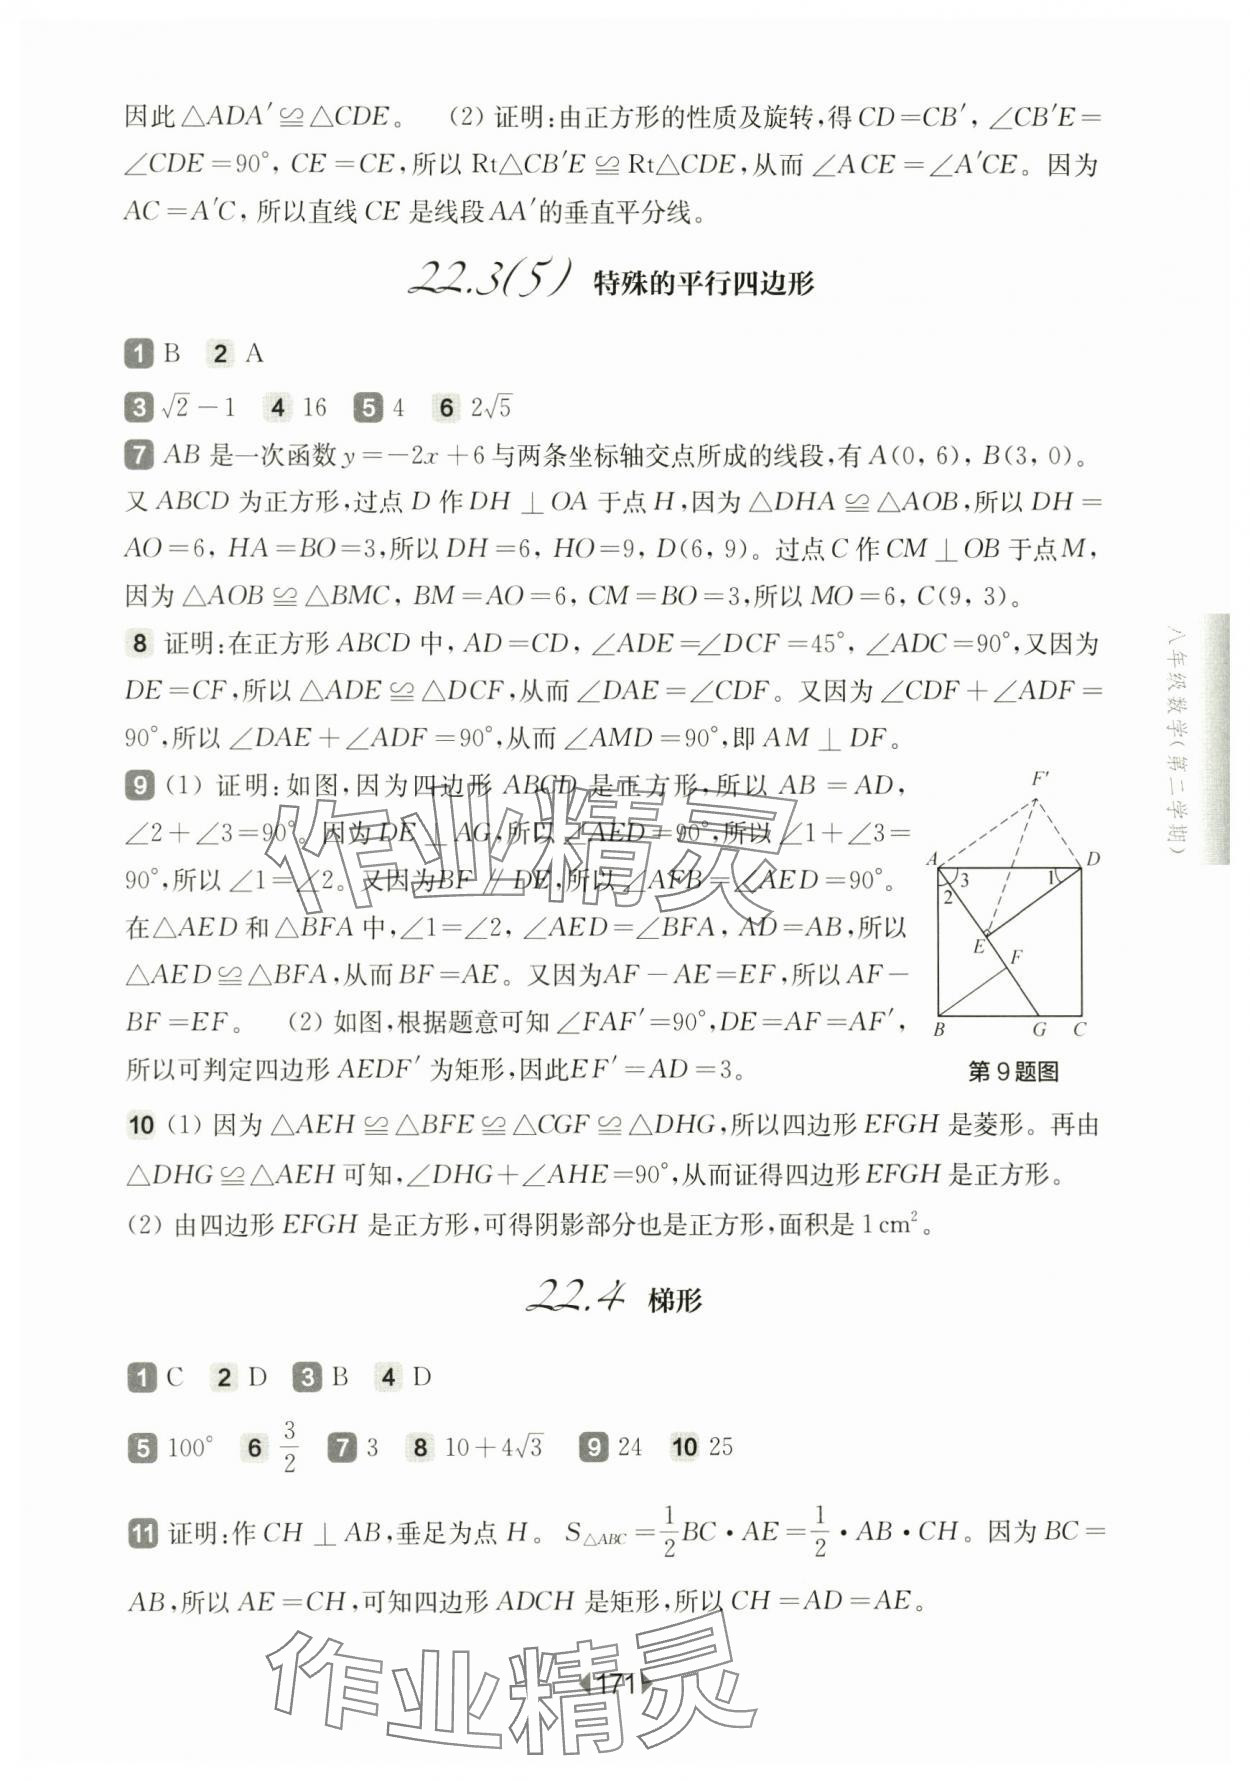 因此△ADA′≌△CDE。 (2) 证明:由正方形的性质及旋转,得 CD=CB′, ∠CB′E=
∠CDE=90°, CE=CE,所以 Rt△CB′E≌Rt△CDE,从而 ∠ACE=∠A′CE。因为
AC=A′C, 所以直线 CE 是线段 AA′的垂直平分线。
22.3(5) 特殊的平行四边形
1 B 2 A
3 √2-1 4 16 5 4 6 2√5
7 AB 是一次函数 y=-2x+6 与两条坐标轴交点所成的线段,有 A(0, 6), B(3, 0)。
又 ABCD 为正方形,过点 D 作 DH⊥OA 于点 H,因为 △DHA≌△AOB,所以 DH=
AO=6, HA=BO=3,所以 DH=6, HO=9, D(6, 9)。过点 C 作 CM⊥OB 于点 M,
因为 △AOB≌△BMC, BM=AO=6, CM=BO=3,所以 MO=6, C(9, 3)。
8 证明:在正方形 ABCD 中, AD=CD, ∠ADE=∠DCF=45°, ∠ADC=90°,又因为
DE=CF,所以 △ADE≌△DCF,从而 ∠DAE=∠CDF。又因为 ∠CDF+∠ADF=
90°,所以 ∠DAE+∠ADF=90°,从而 ∠AMD=90°,即 AM⊥DF。
9 (1) 证明:如图,因为四边形 ABCD 是正方形,所以 AB=AD,
∠2+∠3=90°。因为 DE⊥AG,所以 ∠AED=90°,所以 ∠1+∠3=
90°,所以 ∠1=∠2。又因为BF∥DE,所以 ∠AFB=∠AED=90°。
在△AED 和△BFA 中,∠1=∠2, ∠AED=∠BFA, AD=AB,所以
△AED≌△BFA,从而 BF=AE。又因为AF-AE=EF,所以 AF-
BF=EF。 (2) 如图,根据题意可知 ∠FAF′=90°,DE=AF=AF′,
所以可判定四边形 AEDF′ 为矩形,因此EF′=AD=3。
F′
A
D
3
1
2
E
F
B
G
C
第9题图
10 (1) 因为 △AEH≌△BFE≌△CGF≌△DHG,所以四边形 EFGH 是菱形。再由
△DHG≌△AEH 可知,∠DHG+∠AHE=90°,从而证得四边形 EFGH 是正方形。
(2) 由四边形 EFGH 是正方形,可得阴影部分也是正方形,面积是 1 cm²。
22.4 梯形
1 C 2 D 3 B 4 D
5 100° 6 3/2 7 3 8 10+4√3 9 24 10 25
11 证明:作 CH⊥AB,垂足为点 H。 S△ABC=1/2 BC·AE=1/2·AB·CH。因为 BC=
AB,所以 AE=CH,可知四边形 ADCH 是矩形,所以 CH=AD=AE。
171
八年级数学(第二学期)
作业精灵
作业精灵